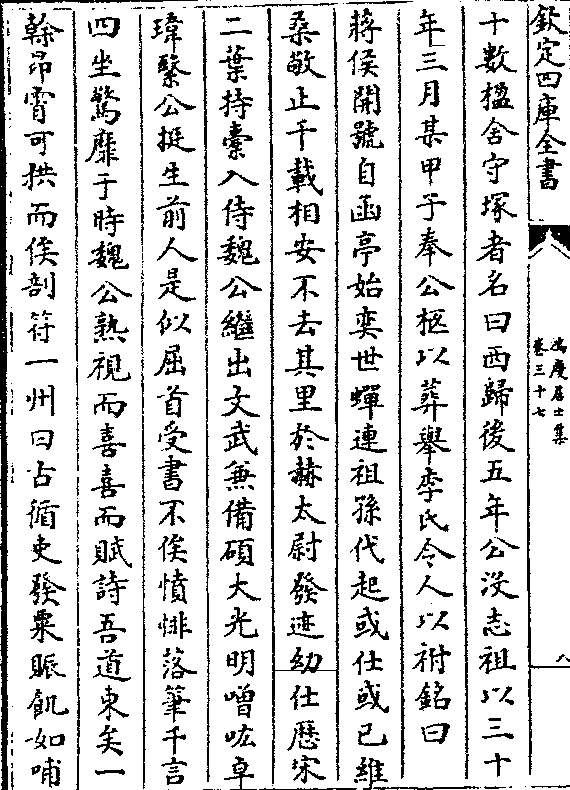 欽定四庫全書
鴻慶居士集
卷三十七
八
十數楹舍守塚者名曰西歸後五年公沒志祖以三十
年三月某甲子奉公柩以葬舉李氏令人以祔銘曰
蔣侯開號自函亭始奕世蟬連祖孫代起或仕或已維
桑敬止千載相安不去其里於赫太尉發迹幼仕歴宋
二葉持橐入侍魏公繼出文武兼備碩大光明噌吰卓
瑋繄公挺生前人是似屈首受書不俟憤悱落筆千言
四坐驚靡于時魏公熟視而喜喜而賦詩吾道東矣一
榦昂霄可拱而俟剖符一州曰古循吏發粟賑飢如哺